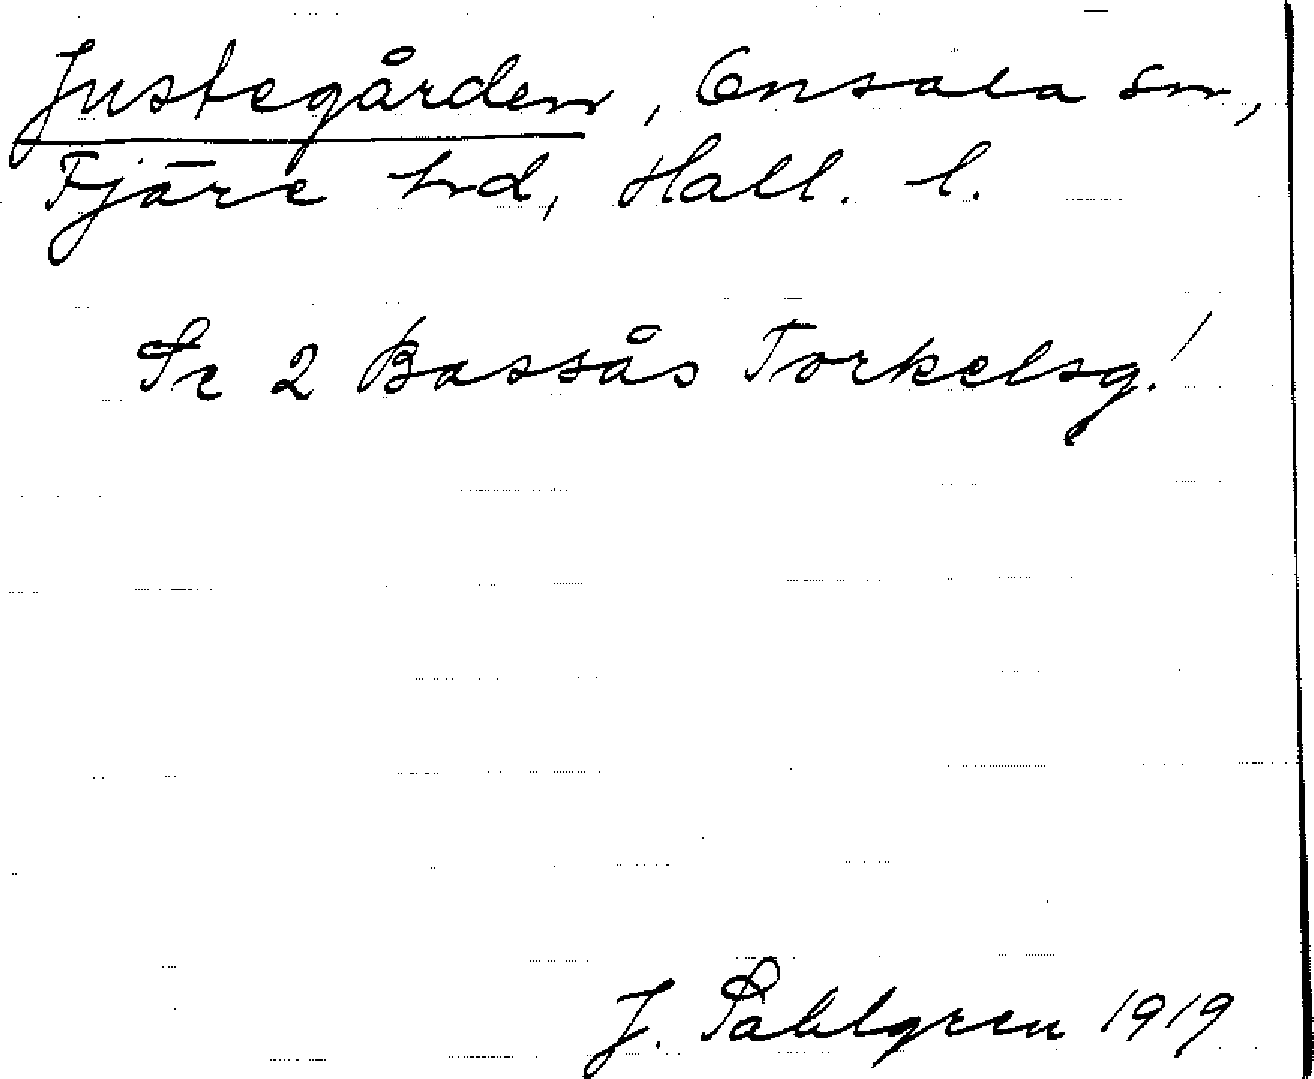 Justegården, Onsala sn,
Fjäre hd, Hall. l.
Se 2 Bassås Torkelsg.!
J. Sahlgren 1919